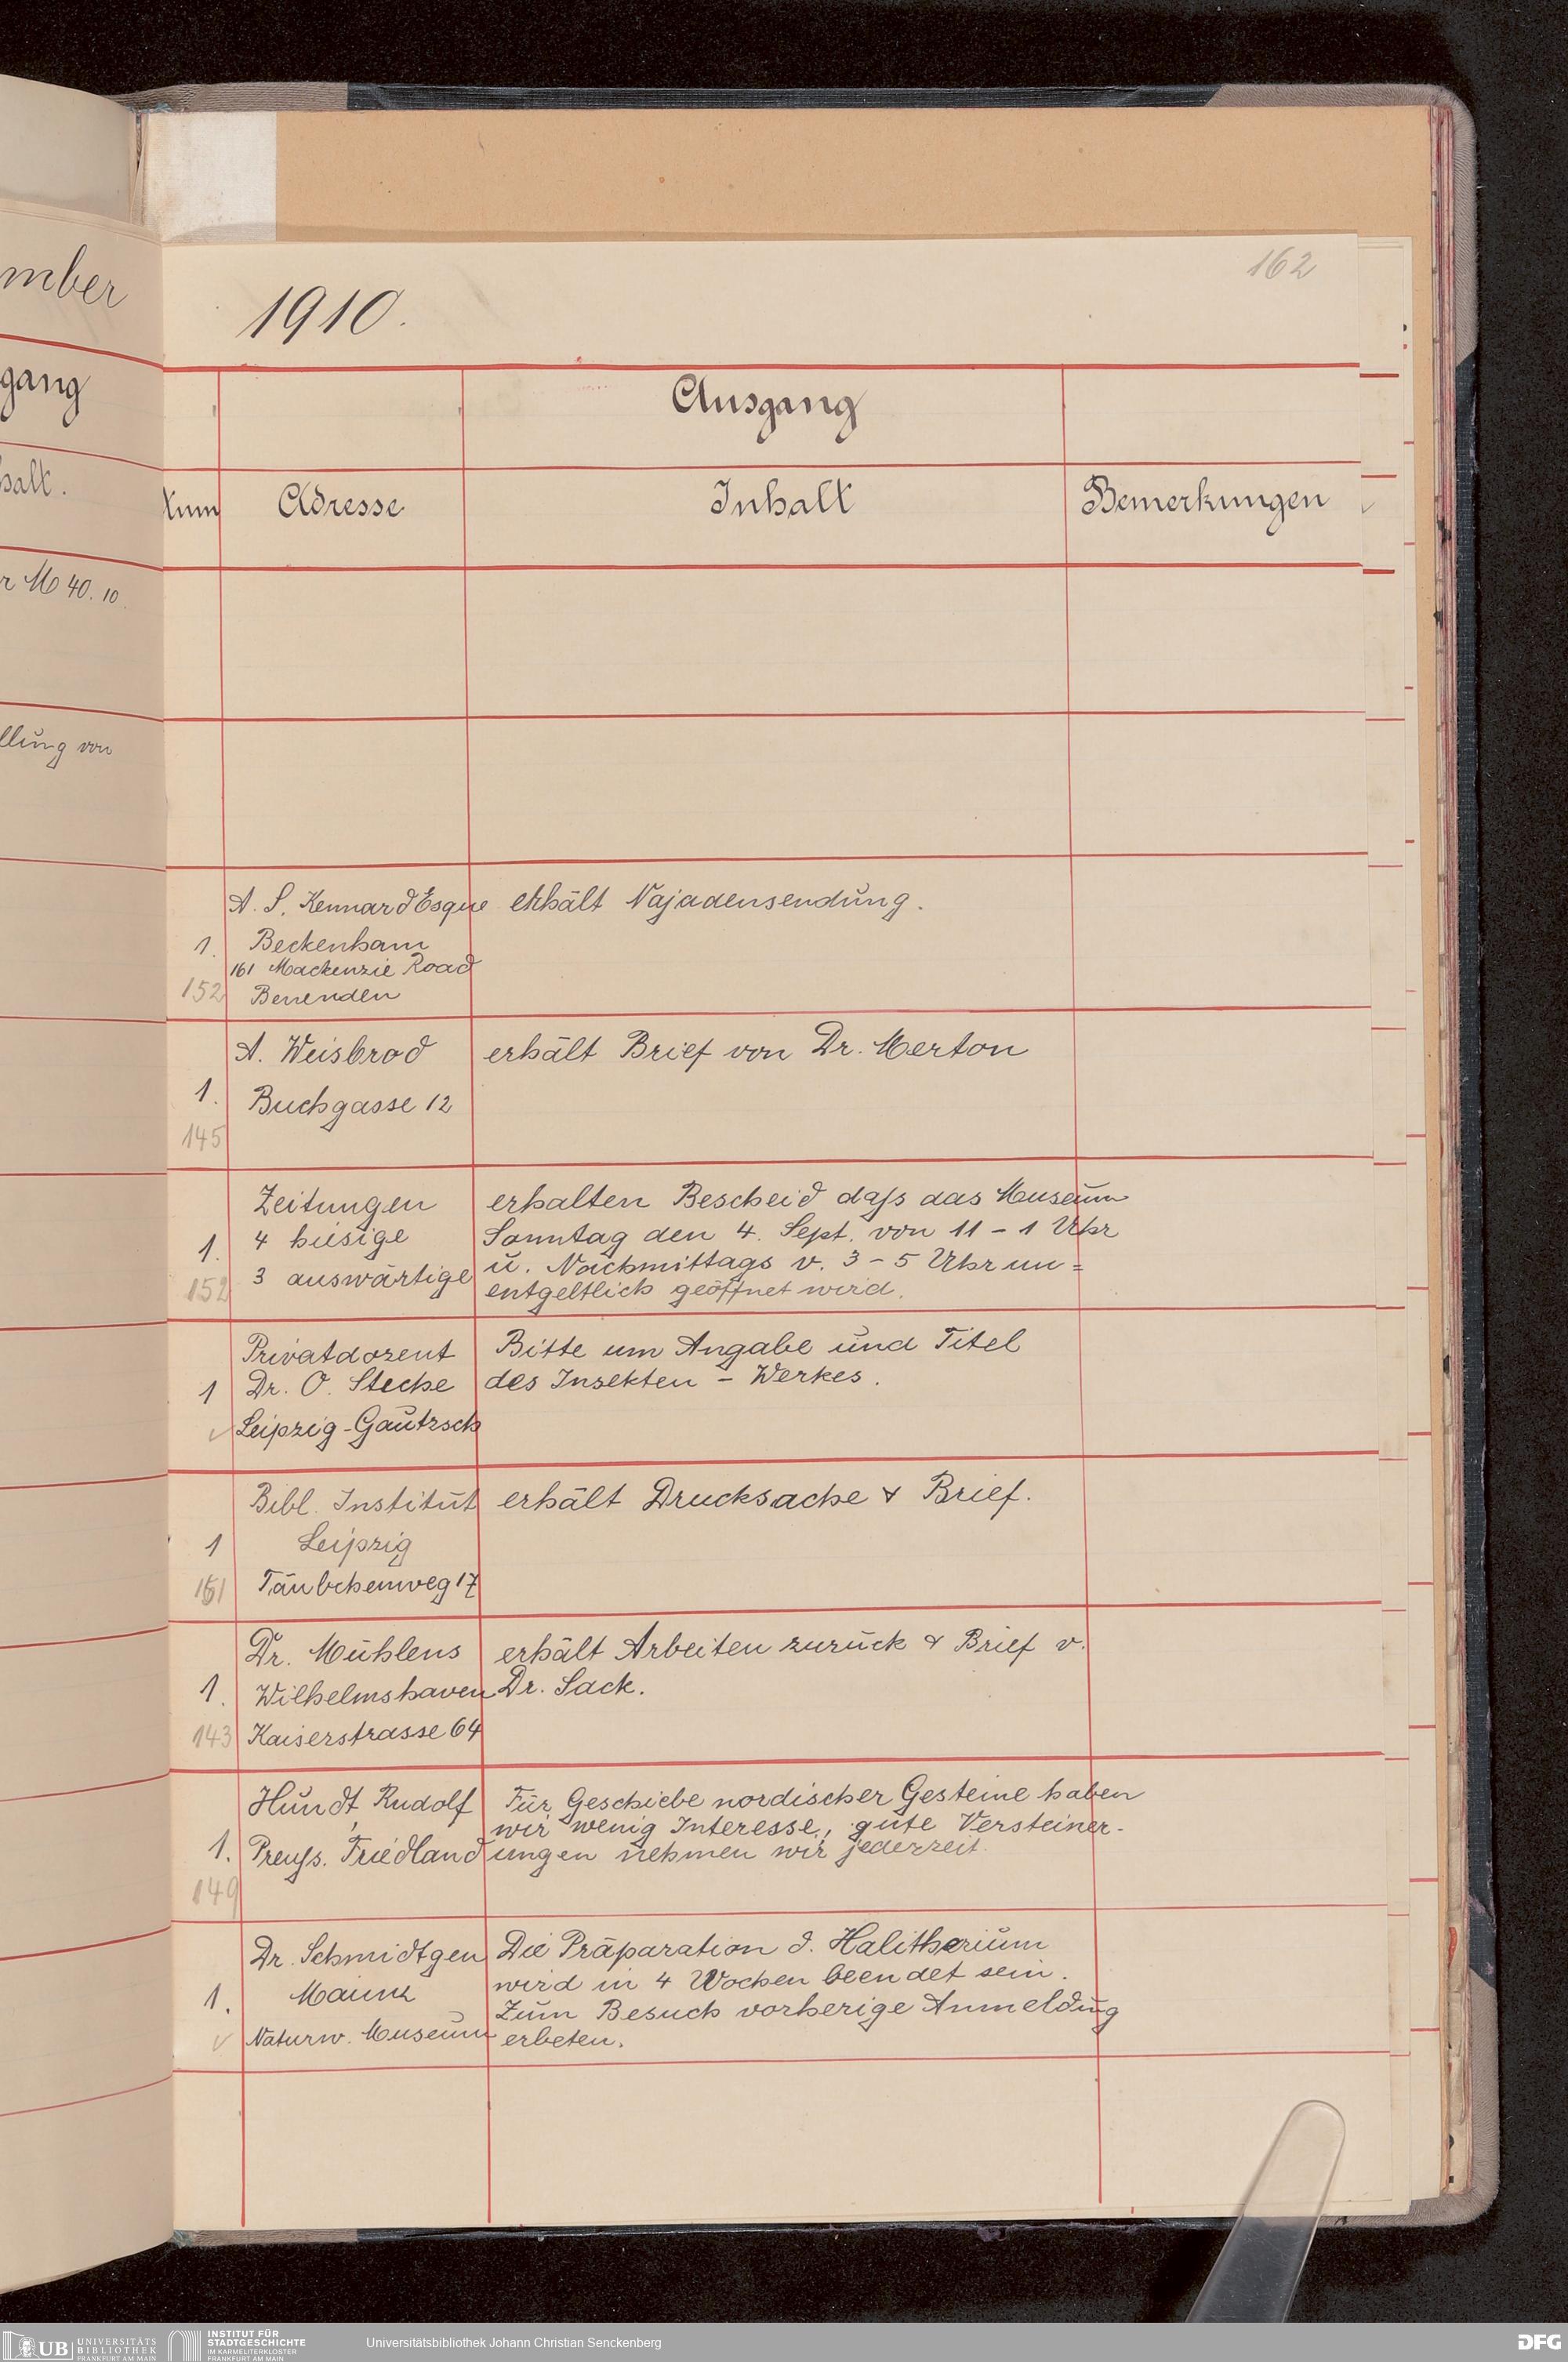 mber
gang
halt.
r M 40.10.
llung von
162
1910.
Ausgang
tum
Adresse
Inhalt
Bemerkungen
A. S. Kennard Esque
erhält Najadensendung.
1.
Beckenham
161 Mackenzie Road
152
Benenden
A. Weisbrod
erhält Brief von Dr. Merton
1.
Buchgasse 12
145
Zeitungen
4 hiesige
1.
3 auswärtige
152
erhalten Bescheid dass das Museum
Sonntag den 4. Sept. von 11 - 1 Uhr
u. Nachmittags v. 3 - 5 Uhr un=
entgeltlich geöffnet wird.
Privatdozent
1
Dr. O. Steche
Leipzig-Gautzsch
Bitte um Angabe und Titel
des Insekten - Werkes.
Bibl. Institut
erhält Drucksache & Brief.
1
Leipzig
151
Täubchenweg 17
Dr. Mühlens
1.
Wilhelmshaven
143
Kaiserstrasse 64
erhält Arbeiten zurück & Brief v.
Dr. Sack.
Hundt, Rudolf
1.
Preuss. Friedland
149
Für Geschiebe nordischer Gesteine haben
wir wenig Interesse, gute Versteiner-
ungen nehmen wir jederzeit.
Dr. Schmidtgen
1.
Mainz
Naturw. Museum
Die Präparation d. Halitherium
wird in 4 Wochen beendet sein.
Zum Besuch vorherige Anmeldung
erbeten.
UB
UNIVERSITÄTS
BIBLIOTHEK
FRANKFURT AM MAIN
INSTITUT FÜR
STADTGESCHICHTE
IM KARMELITERKLOSTER
FRANKFURT AM MAIN
Universitätsbibliothek Johann Christian Senckenberg
DFG